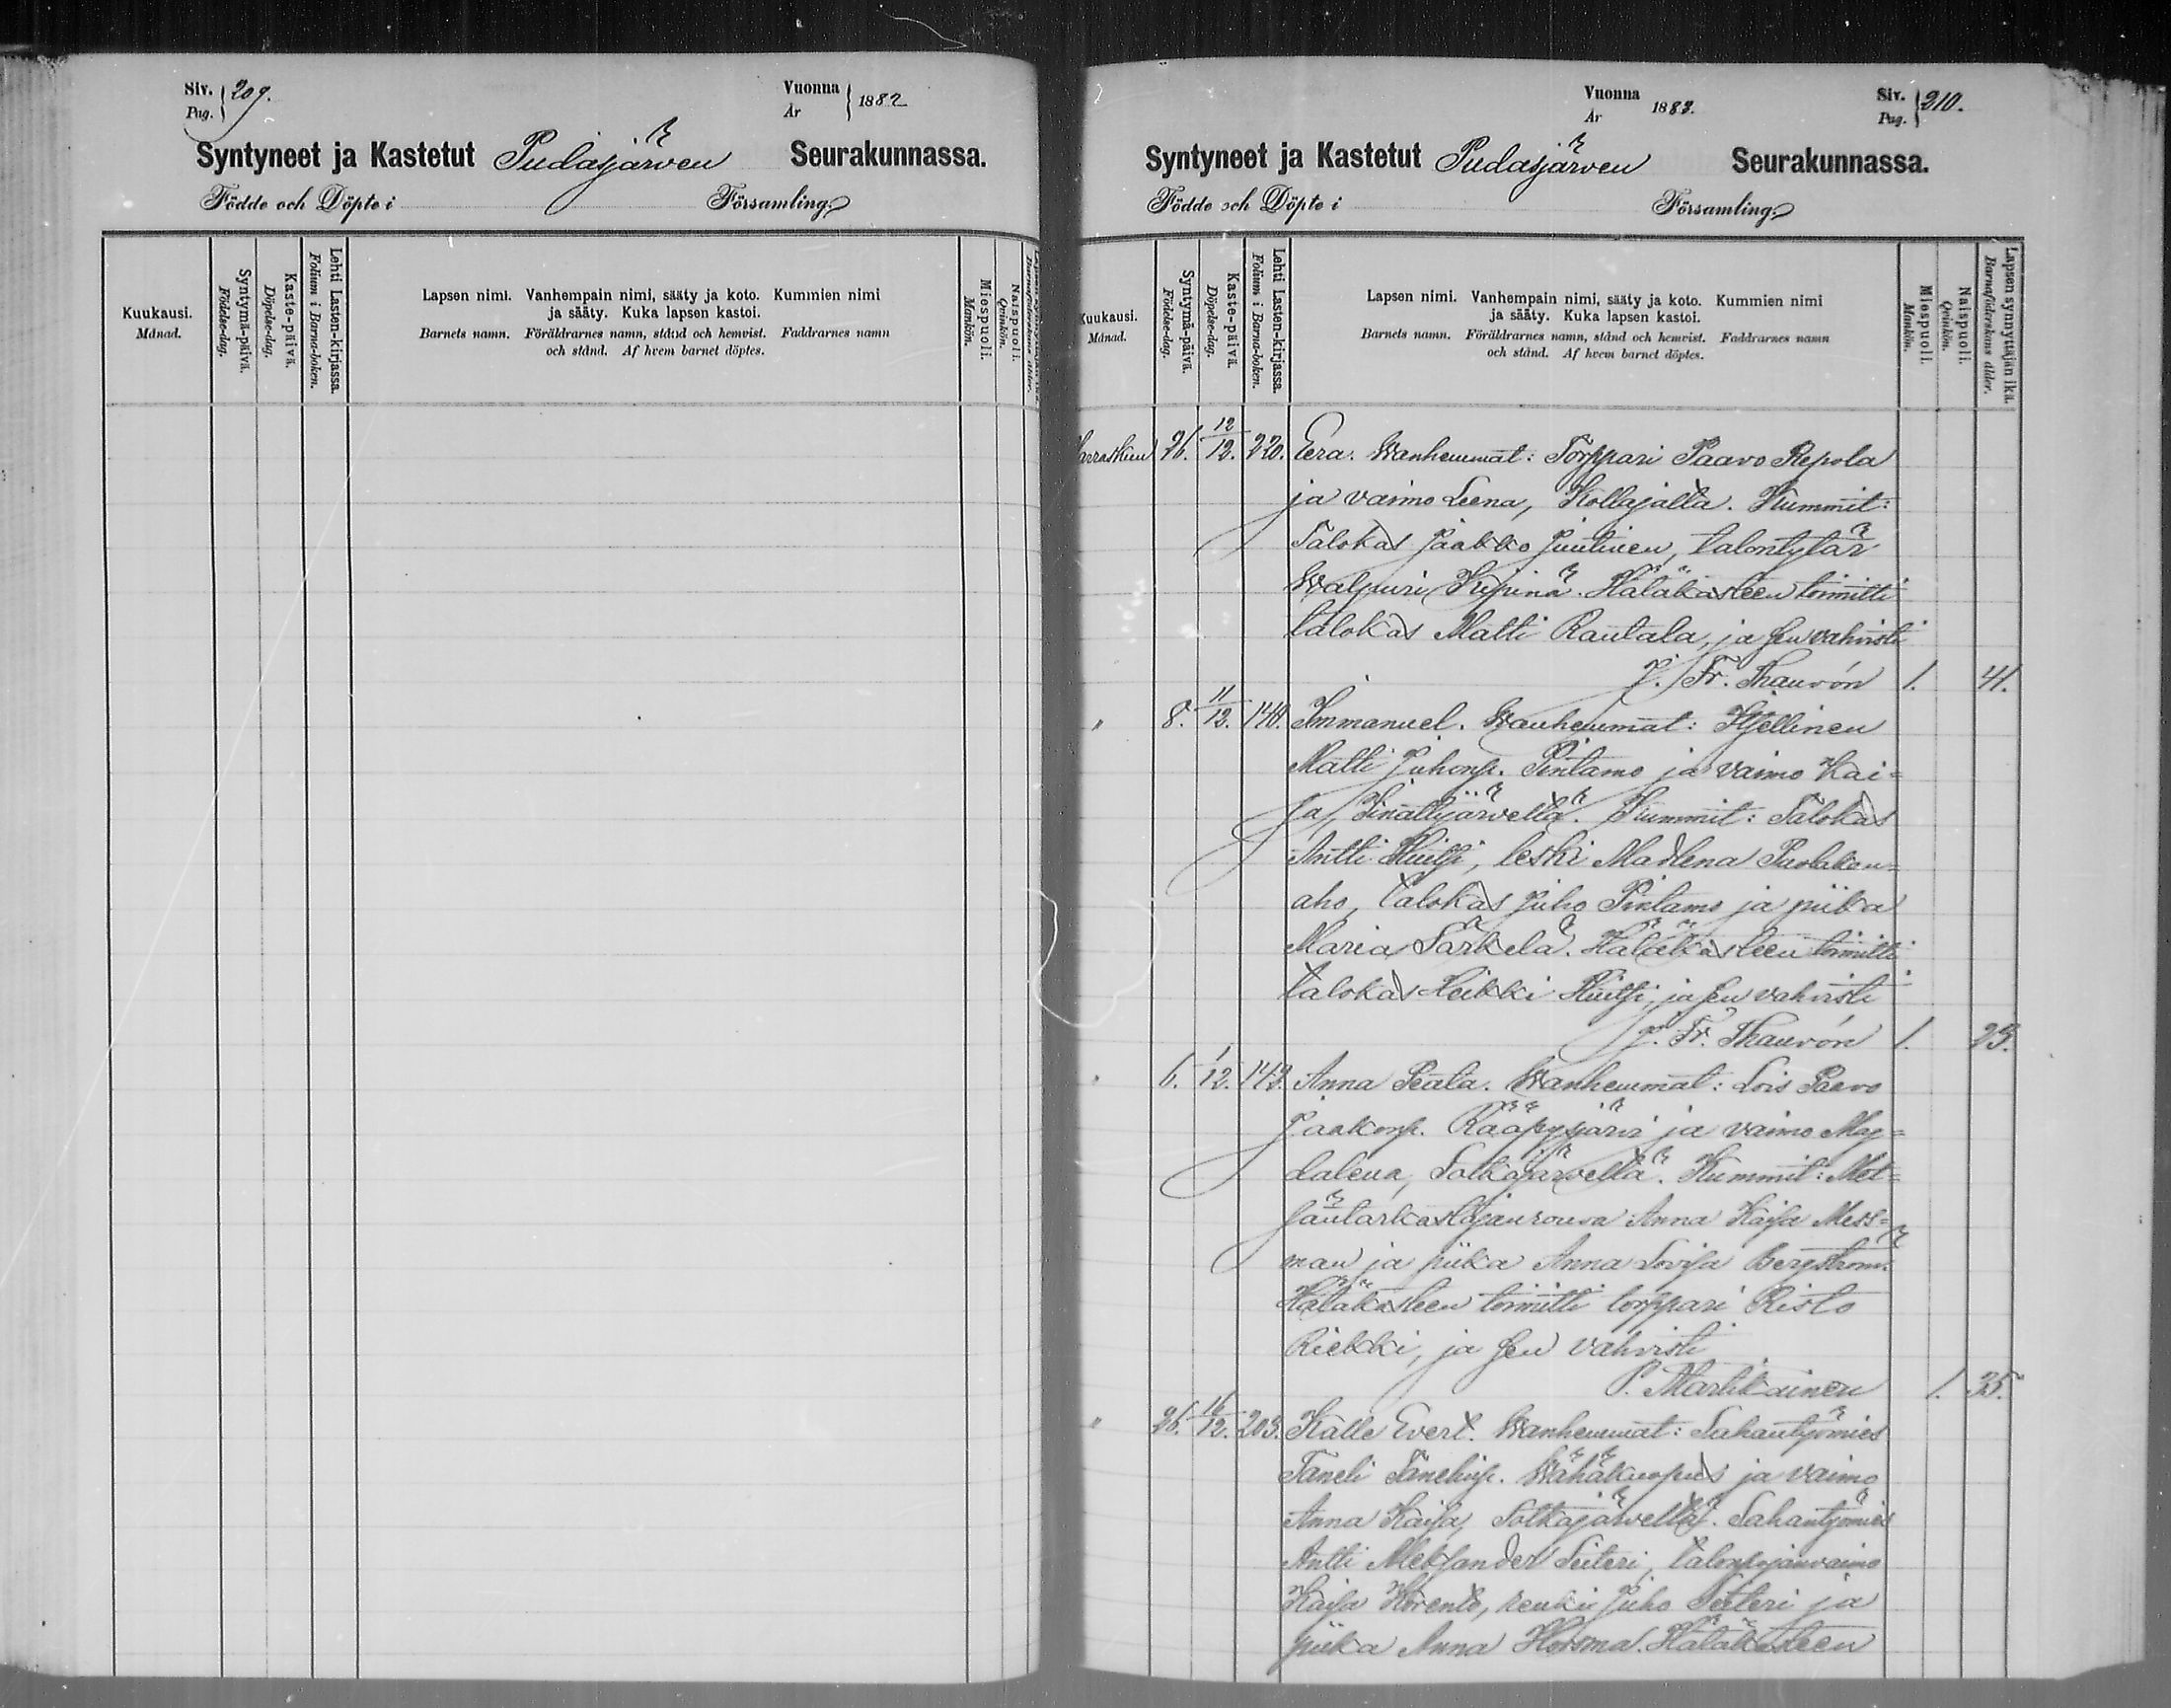 Siv. Pug. } 209.
Vuonna År } 1882
Syntyneet ja Kastetut Pudasjärven Seurakunnassa.
Födde och Döpte i Församling.
Kuukausi. Månad.
Syntymä-päivä. Födelse-dag.
Kaste-päivä. Döpelse-dag.
Lehti Lasten-kirjassa. Folium i Barna-boken.
Lapsen nimi. Vanhempain nimi, sääty ja koto. Kummien nimi
ja sääty. Kuka lapsen kastoi.
Barnets namn. Föräldrarnes namn, stånd och hemvist. Faddrarnes namn
och stånd. Af hvem barnet döptes.
Miespuoli. Mankön.
Naispuoli. Qvinkön.
Vuonna År 1882.
Siv. Pug. } 210.
Syntyneet ja Kastetut Pudasjärven Seurakunnassa.
Födde och Döpte i Församling.
Kuukausi. Månad.
Syntymä-päivä. Födelse-dag.
Kaste-päivä. Döpelse-dag.
Lehti Lasten-kirjassa. Folium i Barna-boken.
Lapsen nimi. Vanhempain nimi, sääty ja koto. Kummien nimi
ja sääty. Kuka lapsen kastoi.
Barnets namn. Föräldrarnes namn, stånd och hemvist. Faddrarnes namn
och stånd. Af hvem barnet döptes.
Miespuoli. Mankön.
Naispuoli. Qvinkön.
Lapsen synnyttäjän ikä. Barnaföderskans ålder.
26. 12/12. 220. Eera. Wanhemmat: Torppari Paavo Repola
ja vaimo Leena, Kollajalta. Kummit:
Talokas Jaakko Juutinen, talontytär
Walpuri Kipinä. Hätäkasteen toimitti
talokas Matti Rautala, ja sen vahvisti
J. Fr. Thauvón 1. 41.
" 8. 11/12. 140. Immanuel. Wanhemmat: Itsellinen
Matti Juhonp. Pintamo ja vaimo Kai=
sa, Kinattijärvellä. Kummit: Talokas
Antti Hiltti, leski Madlena Puolaken=
aho, talokas Juho Pintamo ja piika
Maria Särkelä. Hätäkasteen toimitti
talokas Heikki, ja sen vahvisti
J. Fr. Thauvón 1. 23.
" 6. 1/12. 142. Anna Peata. Wanhemmat: Lois Paavo
Jaakonp. Rääpysjärvi ja vaimo Mag=
dalena, Sotkajärvellä. Kummit: Met=
säntarkastajanrouva Anna Kaisa Mess=
man ja piika Anna Lovisa Bergström.
Hätäkasteen toimitti torppari Risto
Riekki, ja sen vahvisti
P. Martikainen 1. 35.
" 26. 16/12. 203. Kalle Evert. Wanhemmat: Sahantyömies
Taneli Tanelinp. Wähäkuopus ja vaimo
Anna Kaisa, Sotkajärvellä. Sahantyömies
Antti Aleksander Seiteri, talonpojanvaimo
Kaisa Horento, renki Juho Seiteri ja
piika Anna Horsma. Hätäkasteen